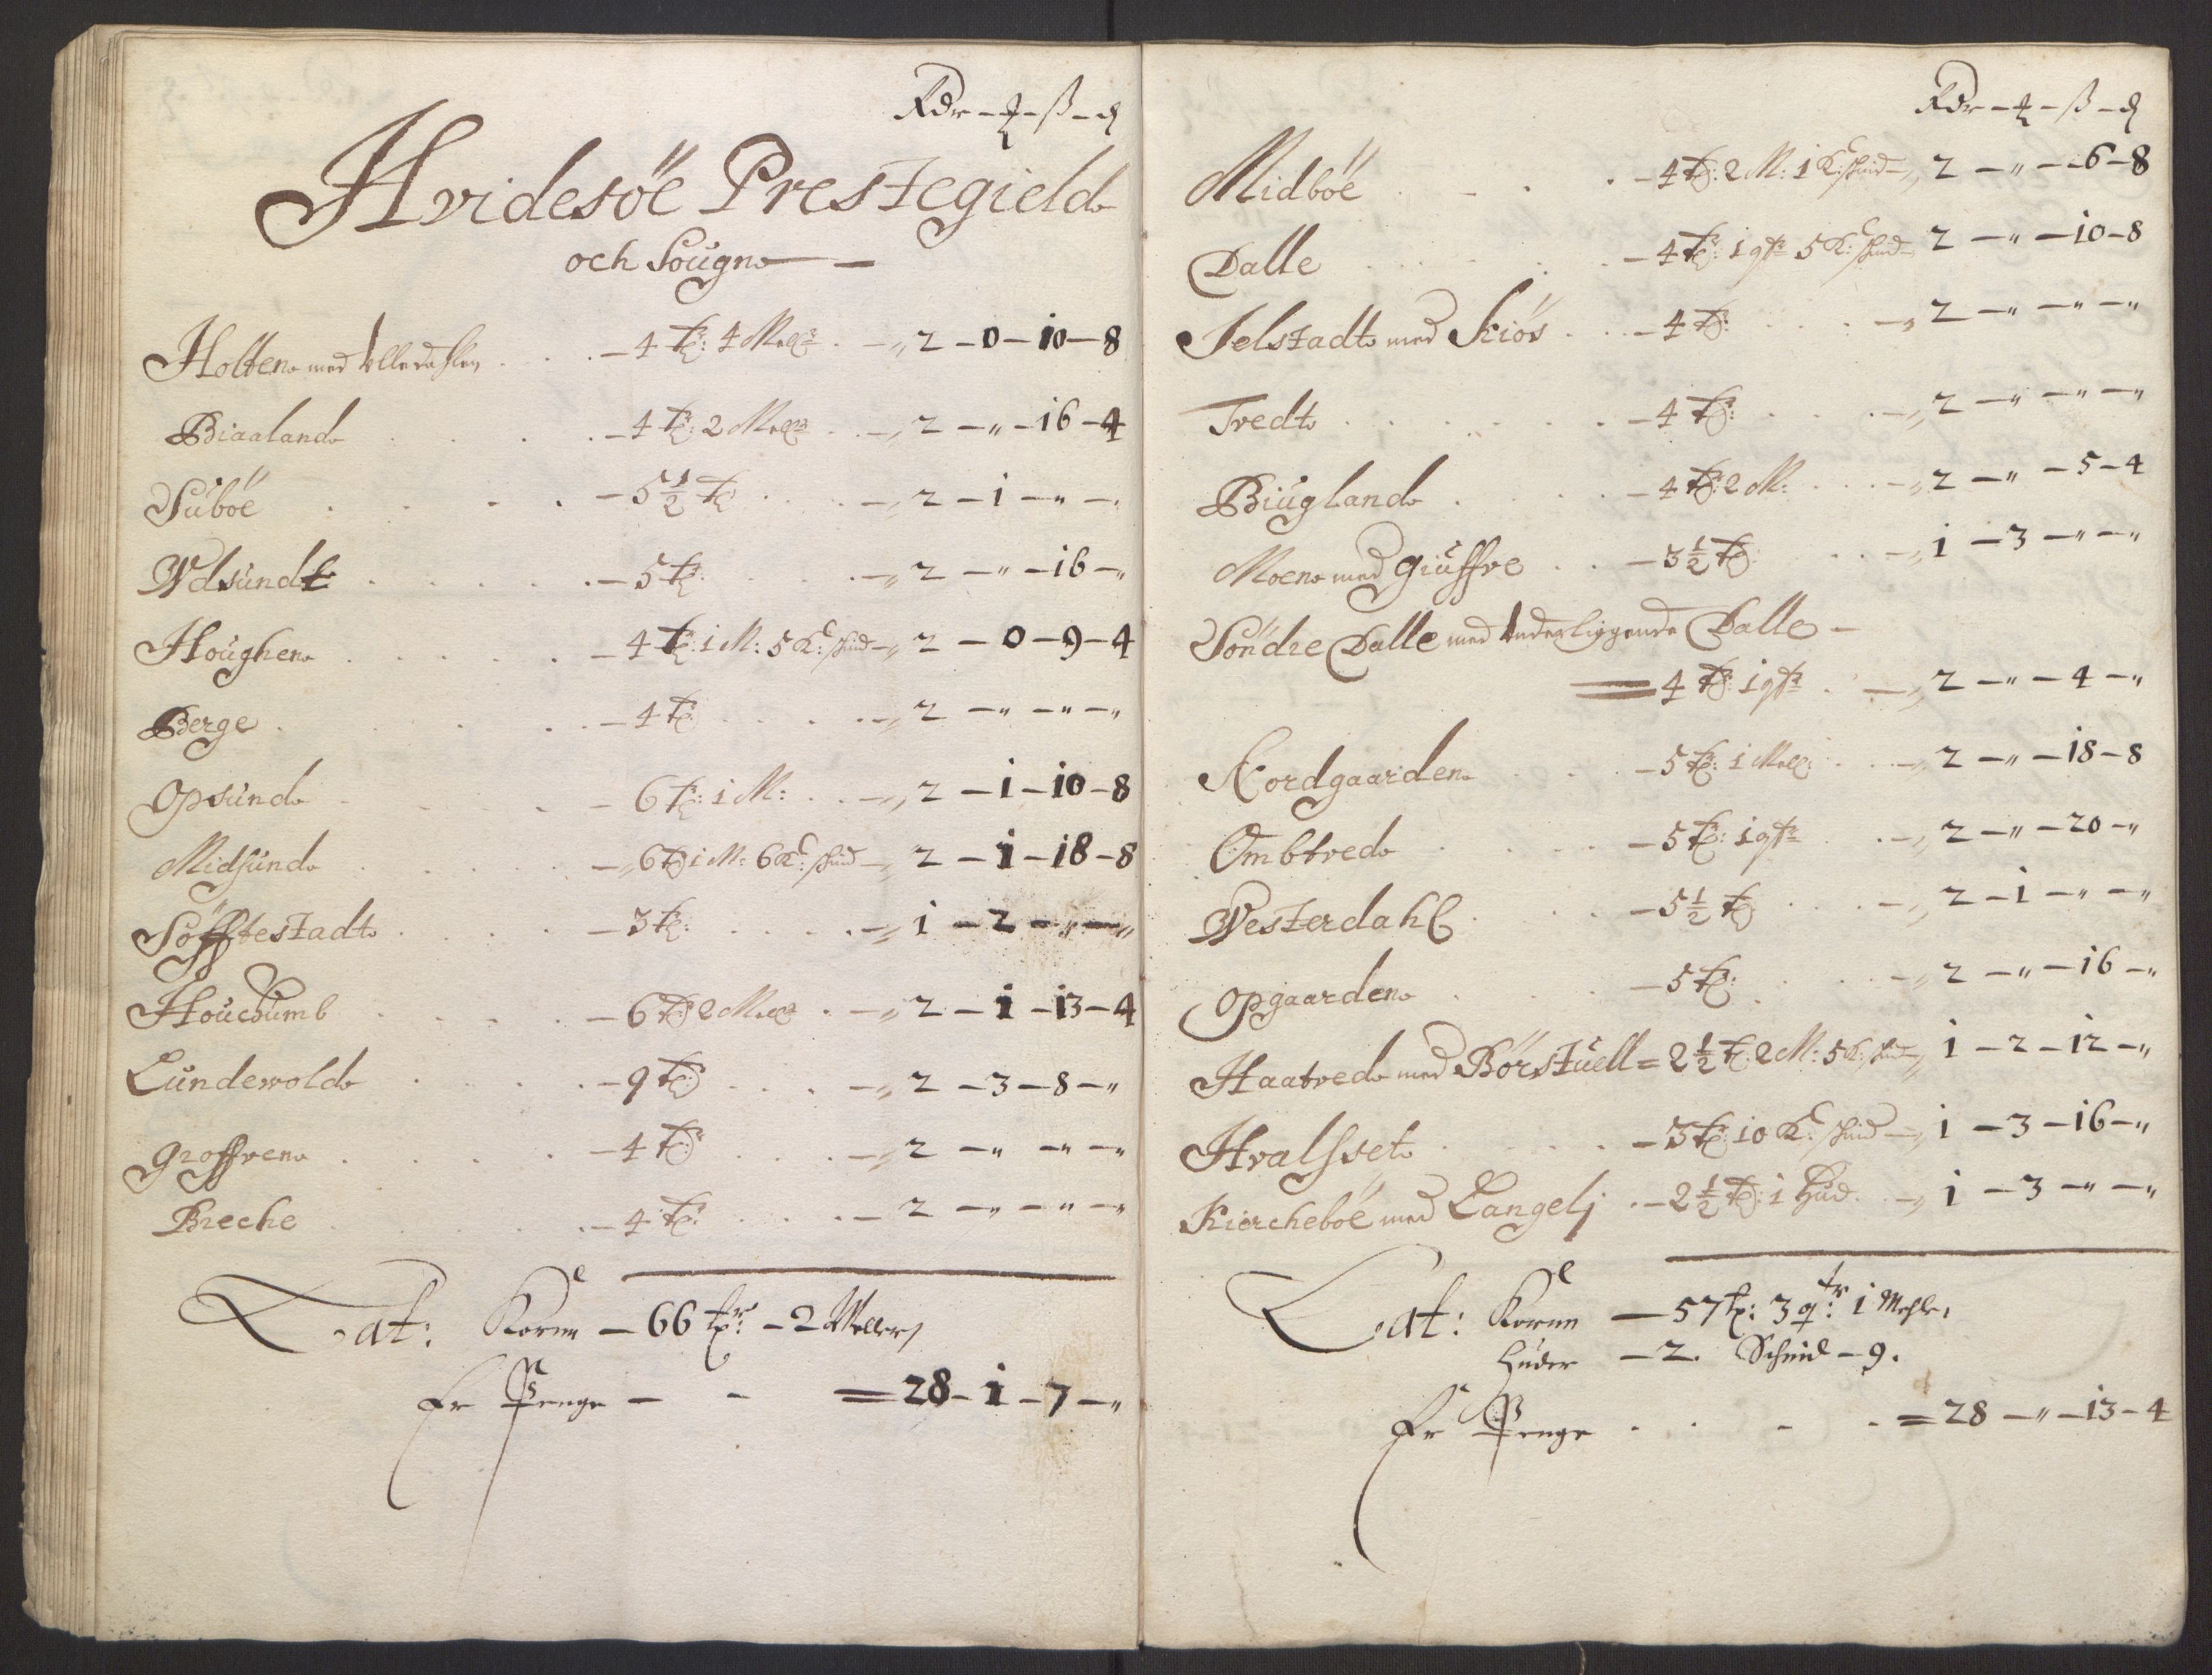 Rdr – ƶ – ß – ₰
Hvidesöe Prestegield
och Sougn –
Holten med Ulledahlen – 4 tr: 4 Meelr – 2 – 0 – 10 – 8
Biaaland – 4 tr: 2 Meelr – 2 – " – 16 – 4
Süböe – 5 1/2 tr – 2 – 1 – " – "
Vdsundt – 5 tr – 2 – " – 16 – "
Houghen – 4 tr: 1 M: 5 K: skind – 2 – 0 – 9 – 4
Berge – 4 tr – 2 – " – " – "
Opsund – 6 tr: 1 M: – 2 – 1 – 10 – 8
Midsund – 6 tr 1 M: 6 K: skind – 2 – 1 – 18 – 8
Söfftestadt – 3 tr: – 1 – 2 – " – "
Houchumb – 6 tr 2 Meelr – 2 – 1 – 13 – 4
Lundewold – 9 tr – 2 – 3 – 8 – "
Groffven – 4 tr – 2 – " – " – "
Breche – 4 tr: – 2 – " – " – "
Lat: Korn – 66 tr: – 2 Meller
Er Penge – – = 28 – 1 – 7 – "
Rdr – ƶ – ß – ₰
Midböe – 4 tr: 2 M: 1 K: skind – 2 – " – 6 – 8
Dalle – 4 tr: 1 qtr 5 K: skind – 2 – " – 10 – 8
Jelstadt med Kiös – 4 tr: – 2 – " – " – "
Tvedt – 4 tr: – 2 – " – " – "
Biugland – 4 tr: 2 M: – 2 – " – 5 – 4
Moen med Giuffre – 3 1/2 tr – 1 – 3 – " – "
Söndre Dalle med underliggende Dalle –
= 4 tr: 1 qtr – 2 – " – 4 – "
Nordgaarden – 5 tr: 1 Mell: – 2 – " – 18 – 8
Ombtved – 5 tr: 1 qtr – 2 – " – 20 – "
Vesterdahl – 5 1/2 tr – 2 – 1 – " – "
Opgaarden – 5 tr: – 2 – " – 16 – "
Haatved med Börstuell = 2 1/2 tr: 2 M: 5 K: skind – 1 – 2 – 12 – "
Hvalsset – 3 tr: 10 K: skind – 1 – 3 – 16 – "
Kiercheböe med Langelj – 2 1/2 tr: 1 Hud – 1 – 3 – " – "
Lat: Korn – 57 tr: 3 qtr: 1 Mehle,
Huder – 2. Schind – 9.
Er Penge – = 28 – " – 13 – 4